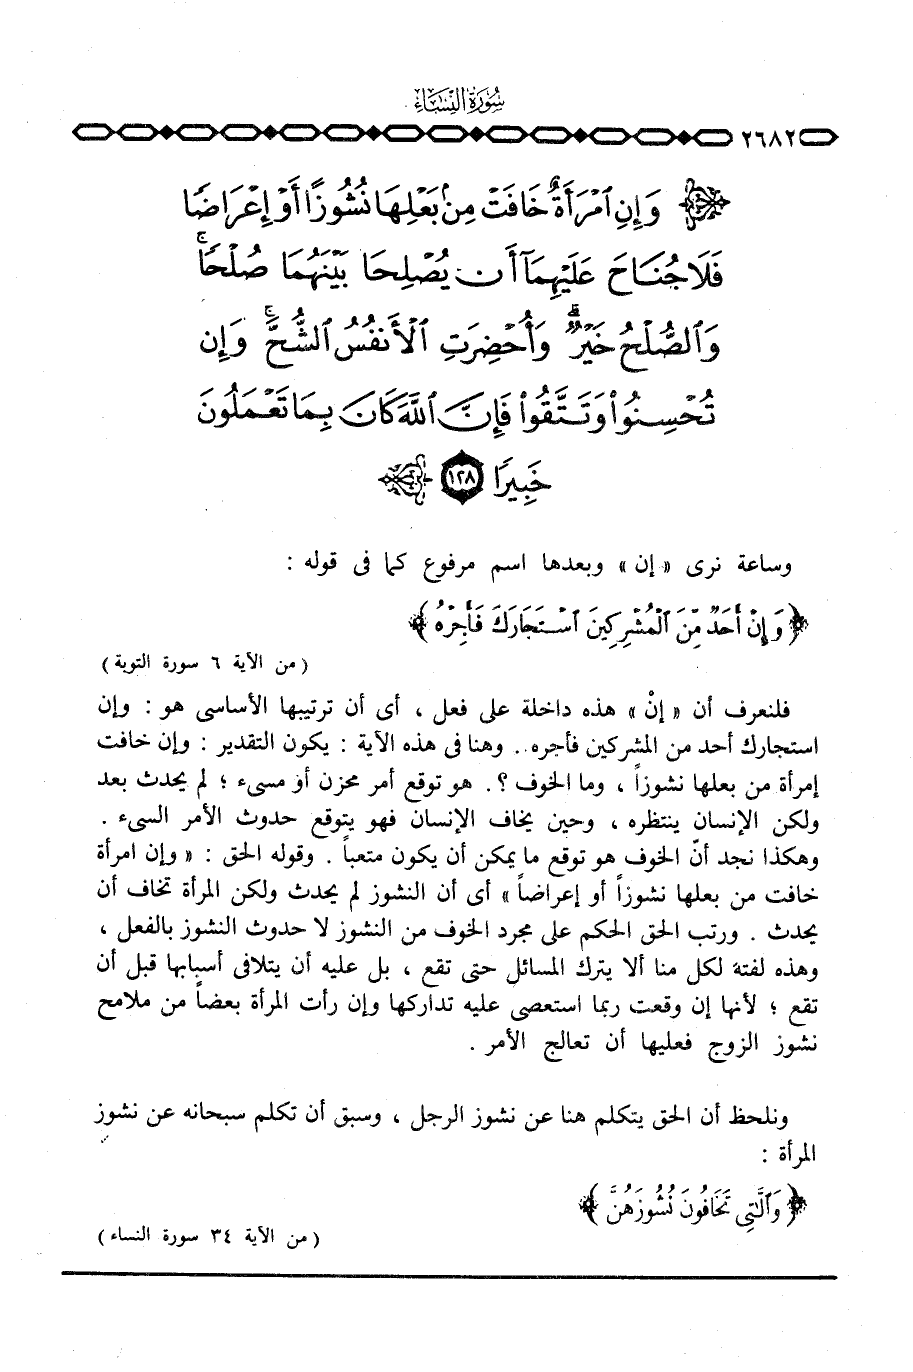 سُورَةُ النِّسَاءِ
٢٦٨٢
﴿ وَإِنِ ٱمْرَأَةٌ خَافَتْ مِنۢ بَعْلِهَا نُشُوزًا أَوْ إِعْرَاضًا
فَلَا جُنَاحَ عَلَيْهِمَآ أَن يُصْلِحَا بَيْنَهُمَا صُلْحًاۚ
وَٱلصُّلْحُ خَيْرٌۗ وَأُحْضِرَتِ ٱلْأَنفُسُ ٱلشُّحَّۚ وَإِن
تُحْسِنُوا۟ وَتَتَّقُوا۟ فَإِنَّ ٱللَّهَ كَانَ بِمَا تَعْمَلُونَ
خَبِيرًا ١٢٨ ﴾
وساعة نرى « إن » وبعدها اسم مرفوع كما فى قوله :
﴿ وَإِنْ أَحَدٌ مِّنَ ٱلْمُشْرِكِينَ ٱسْتَجَارَكَ فَأَجِرْهُ ﴾
( من الآية ٦ سورة التوبة )
فلنعرف أن « إنْ » هذه داخلة على فعل ، أى أن ترتيبها الأساسى هو : وإن
استجارك أحد من المشركين فأجره . وهنا فى هذه الآية : يكون التقدير : وإن خافت
إمرأة من بعلها نشوزاً ، وما الخوف ؟ . هو توقع أمر محزن أو مسىء ؛ لم يحدث بعد
ولكن الإنسان ينتظره ، وحين يخاف الإنسان فهو يتوقع حدوث الأمر السىء .
وهكذا نجد أنّ الخوف هو توقع ما يمكن أن يكون متعباً . وقوله الحق : « وإن امرأة
خافت من بعلها نشوزاً أو إعراضاً » أى أن النشوز لم يحدث ولكن المرأة تخاف أن
يحدث . ورتب الحق الحكم على مجرد الخوف من النشوز لا حدوث النشوز بالفعل ،
وهذه لفتة لكل منا ألا يترك المسائل حتى تقع ، بل عليه أن يتلافى أسبابها قبل أن
تقع ؛ لأنها إن وقعت ربما استعصى عليه تداركها وإن رأت المرأة بعضاً من ملامح
نشوز الزوج فعليها أن تعالج الأمر .
ونلحظ أن الحق يتكلم هنا عن نشوز الرجل ، وسبق أن تكلم سبحانه عن نشوز
المرأة :
﴿ وَٱلَّٰتِى تَخَافُونَ نُشُوزَهُنَّ ﴾
( من الآية ٣٤ سورة النساء )